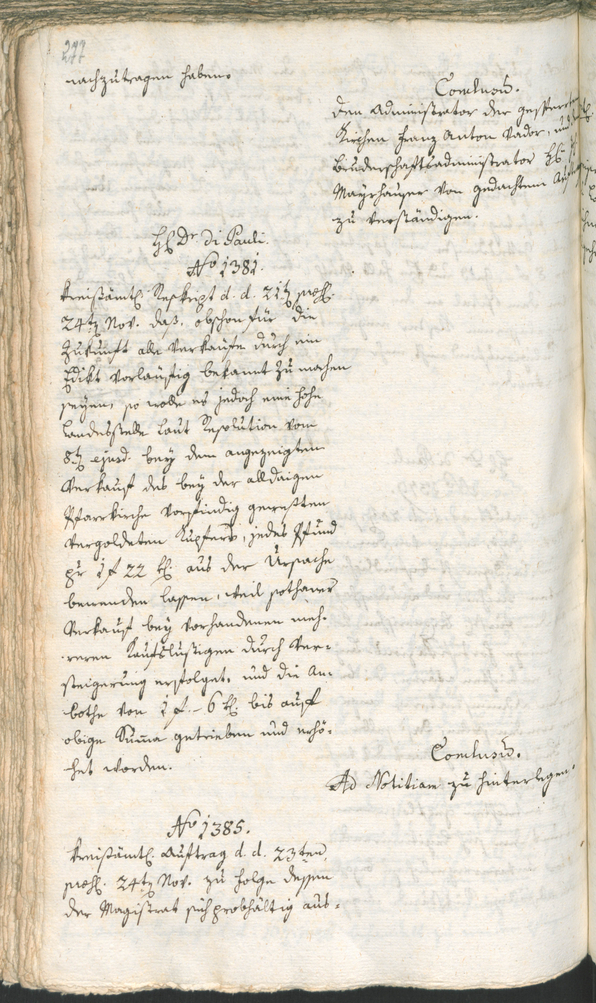 244
nachzutragen haben.
Conclusum.
Den Administrator der gesperrten
Kirchen Franz Anton Vador, und
Bruderschaftsadministrator H:
Mayrhauser von gedachtem
zu verständigen.
H: Dr. di Pauli.
No 1381.
Kreisämtl: Reskript d. d. 21t præs:
24t Nov. daß, obschon für die
Zukunft alle Verkäufe durch ein
Edikt vorläufig bekannt zu machen
seyen, so wolle es jedoch eine hohe
Landesstelle laut Resolution vom
8t ejusd. bey dem angezeigten
Verkauf des bey der alldaigen
Pfarrkirche vorfindig
vergoldeten Kupfers, jedes Pfund
pr 1 f 22 k: aus der Ursache
bewenden lassen, weil sothaner
Verkauf bey vorhandenen meh-
reren Kaufslustigen durch Ver-
steigerung erfolget, und die An-
bothe von 1 f. – 6 k: bis auf
obige Summa getrieben und erhö-
het worden.
Conclusum.
Ad Notitiam zu hinterlegen.
No 1385.
Kreisämtl: Auftrag d. d. 23ten
præs: 24t Nov. zu folge dessen
der Magistrat sich probhältig aus-